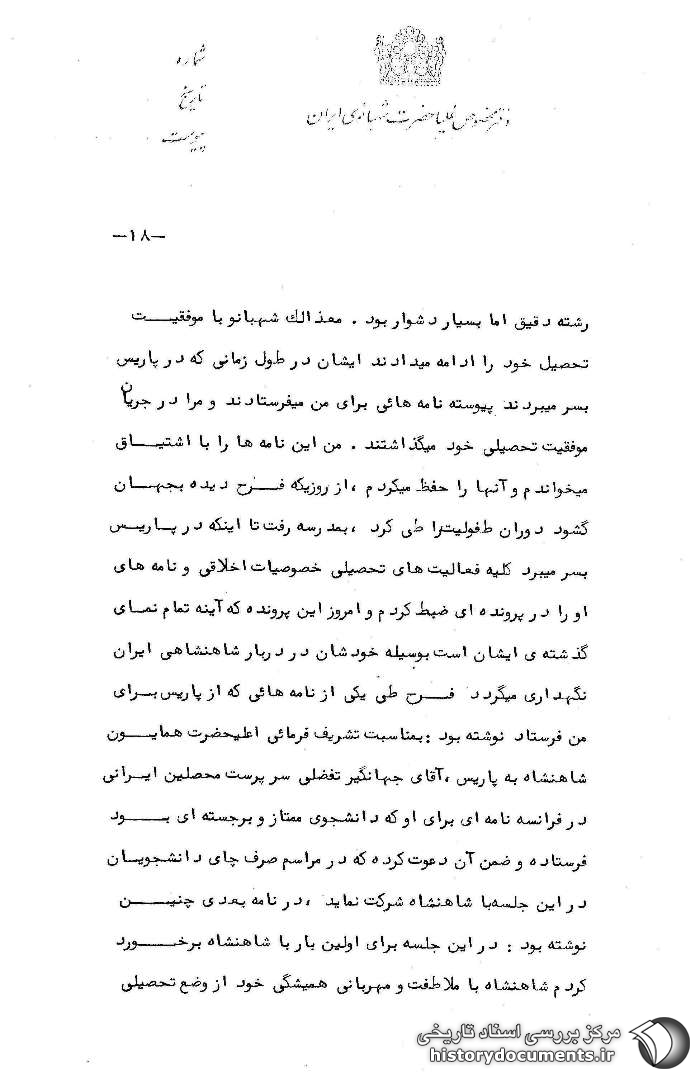 شماره
تاریخ
پیوست
دفتر مخصوص علیاحضرت شهبانوی ایران
—۱۸—
رشته دقیق اما بسیار دشوار بود . معذالك شهبانو با موفقیـــت
تحصیل خود را ادامه میدادند ایشان در طول زمانی که در پاریس
بسر میبردند پیوسته نامه هائی برای من میفرستادند و مرا در جریان
موفقیت تحصیلی خود میگذاشتند . من این نامه ها را با اشتیـــاق
میخواندم و آنها را حفظ میکردم ، از روزیکه فـــرح دیده بجهـــان
گشود دوران طفولیت را طی کرد ، بمدرسه رفت تا اینکه در پـاریـــس
بسر میبرد کلیه فعالیت های تحصیلی خصوصیات اخلاقی و نامه های
او را در پرونده ای ضبط کردم و امروز این پرونده که آینه تمام نمای
گذشته ی ایشان است بوسیله خودشان در دربار شاهنشاهی ایران
نگهداری میگردد فـــرح طی یکی از نامه هائی که از پاریس بـرای
من فرستاد نوشته بود : بمناسبت تشریف فرمائی اعلیحضرت همایـــون
شاهنشاه به پاریس ، آقای جهانگیر تفضلی سرپرست محصلین ایـرانی
در فرانسه نامه ای برای او که دانشجوی ممتاز و برجسته ای بـــود
فرستاده و ضمن آن دعوت کرده که در مراسم صرف چای دانشجویـــان
در این جلسه با شاهنشاه شرکت نماید ، در نامه بعدی چنیـــن
نوشته بود : در این جلسه برای اولین بار با شاهنشاه برخـــورد
کردم شاهنشاه با ملاطفت و مهربانی همیشگی خود از وضع تحصیلی
مرکز بررسی اسناد تاریخی
historydocuments.ir